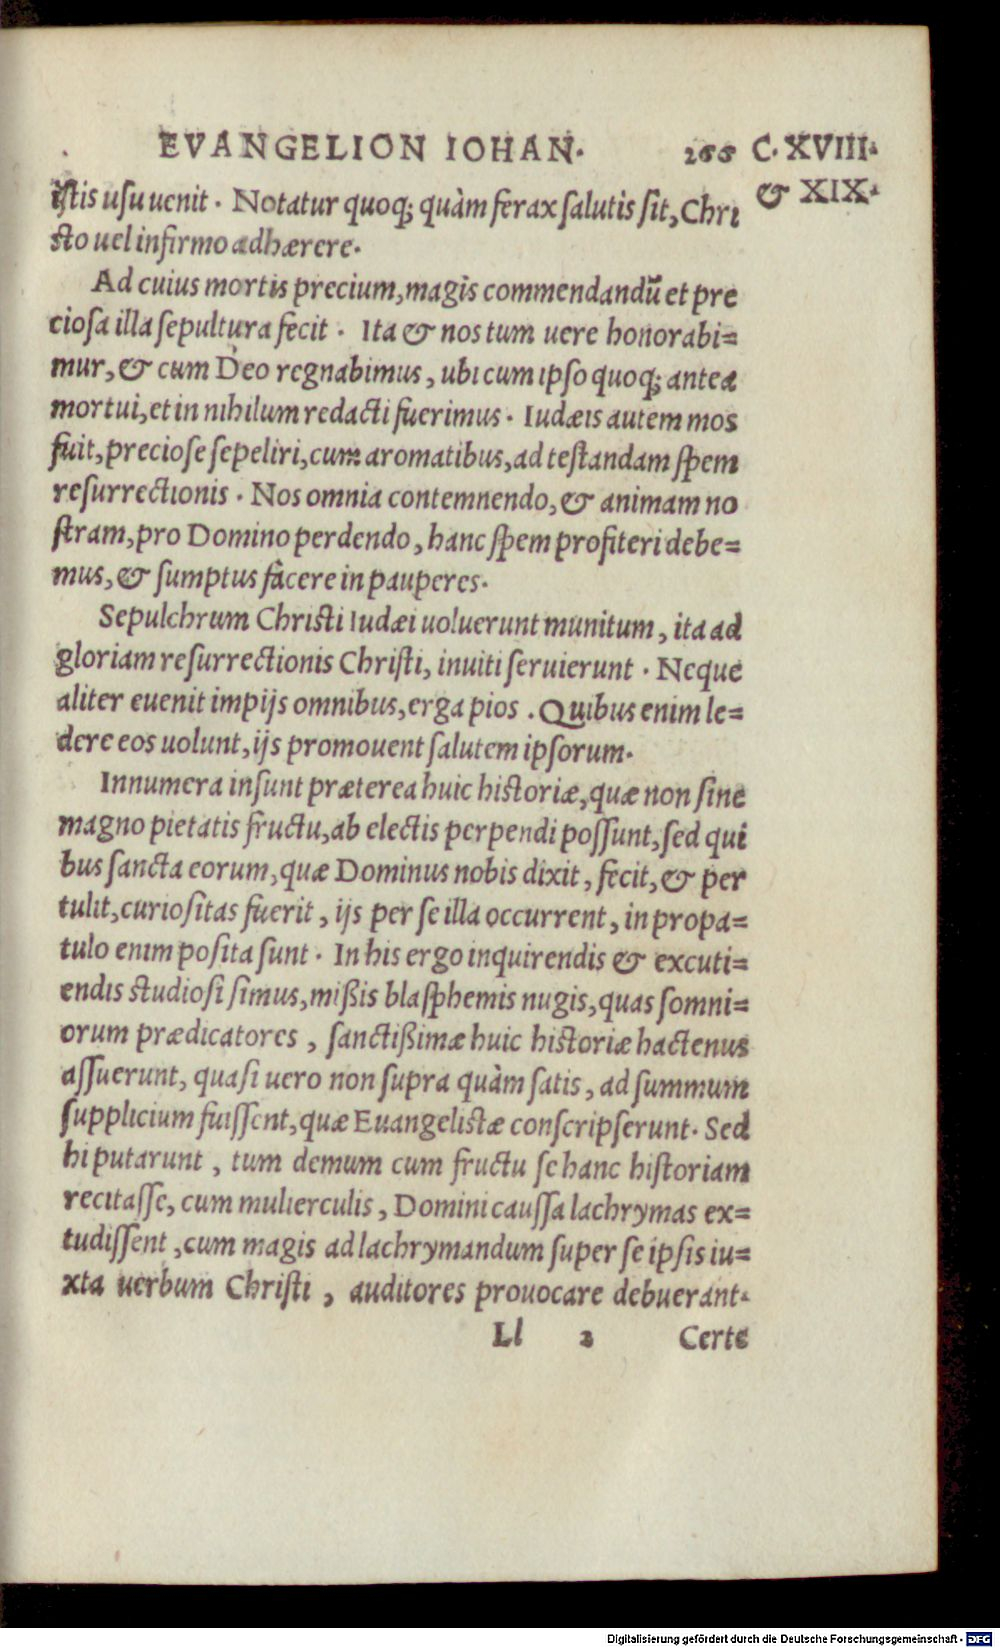 EVANGELION IOHAN. 266 C. XVIII.
& XIX.
istis usu uenit. Notatur quoq; quàm ferax salutis sit, Chri
sto uel infirmo adhærere.
Ad cuius mortis precium, magis commendandũ et pre
ciosa illa sepultura fecit. Ita & nos tum uere honorabi=
mur, & cum Deo regnabimus, ubi cum ipso quoq; antea
mortui, et in nihilum redacti fuerimus. Iudæis autem mos
fuit, preciose sepeliri, cum aromatibus, ad testandam spem
resurrectionis. Nos omnia contemnendo, & animam no
stram, pro Domino perdendo, hanc spem profiteri debe=
mus, & sumptus facere in pauperes.
Sepulchrum Christi Iudæi uoluerunt munitum, ita ad
gloriam resurrectionis Christi, inuiti seruierunt. Neque
aliter euenit impijs omnibus, erga pios. Quibus enim le=
dere eos uolunt, ijs promouent salutem ipsorum.
Innumera insunt præterea huic historiæ, quæ non sine
magno pietatis fructu, ab electis perpendi possunt, sed qui
bus sancta eorum, quæ Dominus nobis dixit, fecit, & per
tulit, curiositas fuerit, ijs per se illa occurrent, in propa=
tulo enim posita sunt. In his ergo inquirendis & excuti=
endis studiosi simus, mißis blasphemis nugis, quas somni=
orum prædicatores, sanctißimæ huic historiæ hactenus
assuerunt, quasi uero non supra quàm satis, ad summum
supplicium fuissent, quæ Euangelistæ conscripserunt. Sed
hi putarunt, tum demum cum fructu se hanc historiam
recitasse, cum mulierculis, Domini caussa lachrymas ex=
tudissent, cum magis ad lachrymandum super se ipsis iu=
xta uerbum Christi, auditores prouocare debuerant.
Ll 2 Certe
Digitalisierung gefördert durch die Deutsche Forschungsgemeinschaft - DFG